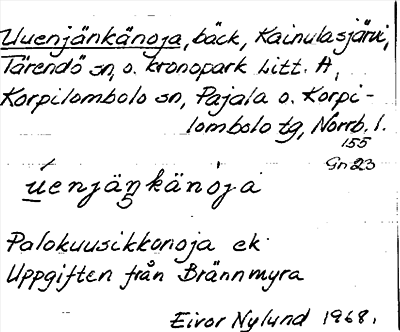 Uuenjänkänoja, bäck, Kainulasjärvi,
Tärendö sn, o. kronopark Litt. A,
Korpilombolo sn, Pajala o. Korpi-
lombolo tg, Norrb. l.
155
Gn 23
úenjäŋkänoja
Palokuusikkonoja ek
Uppgiften från Brännmyra
Eivor Nylund 1968.